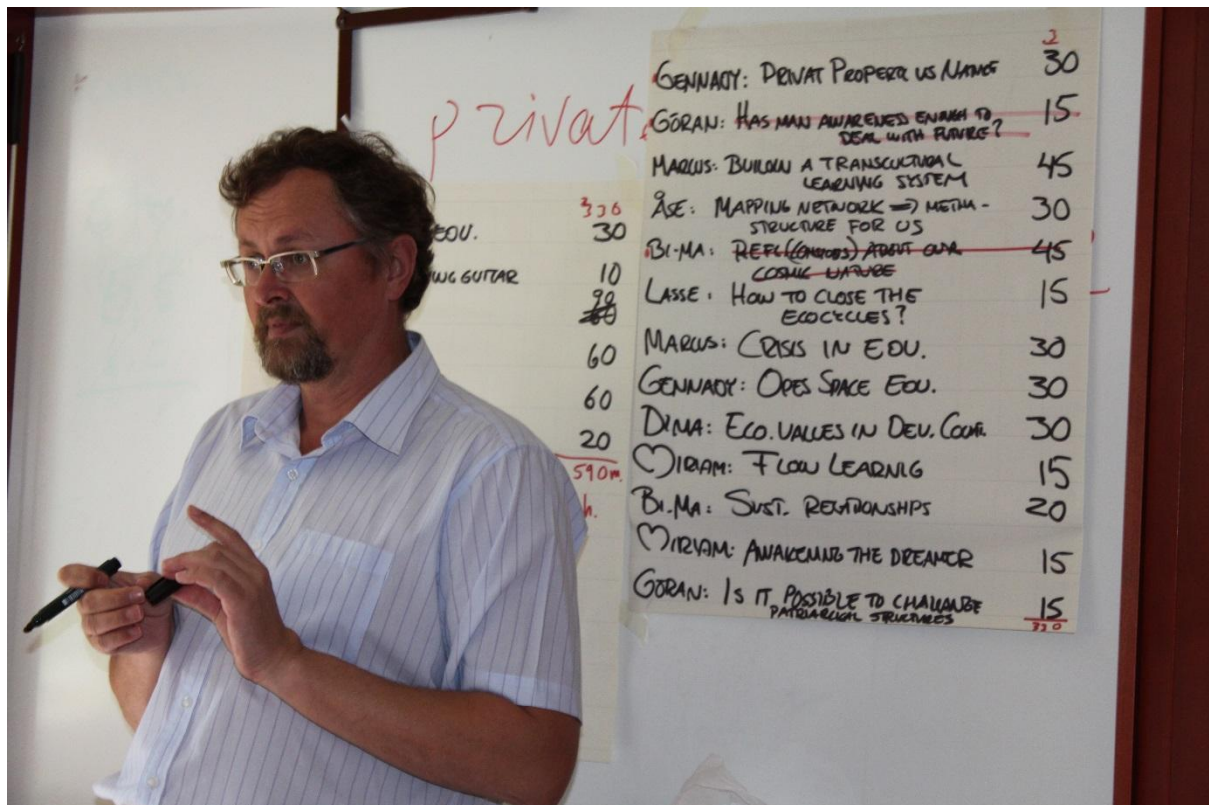 privat
330
EDU. 30
NG GUITAR 10
90
60
60
60
20
590m.
h.
2
GENNADY: PRIVAT PROPERR US NAMGE 30
GÖRAN: HAS MAN AWARENESS ENOUGH TO 15
DEAL WITH FUTURE?
MARCUS: BUILDIN A TRANSCULTURAL 45
LEARNING SYSTEM
ÅSE: MAPPING NETWORK => METHA- 30
STRUCTURE FOR US
BI-MA: ABOUT OUR 45
COSMIC NATURE
LASSE: HOW TO CLOSE THE 15
ECOCYCLES?
MARCUS: CRISIS IN EDU. 30
GENNADY: OPES SPACE EDU. 30
DIMA: ECO. VALUES IN DEV. COUTR. 30
MIRIAM: FLOW LEARNIG 15
BI.MA: SUST. RELATIONSHPS 20
MIRYAM: AWAKENING THE DREAMER 15
GÖRAN: IS IT POSSIBLE TO CHALLANGE 15
PATRIARCICAL STRUCTURES 330